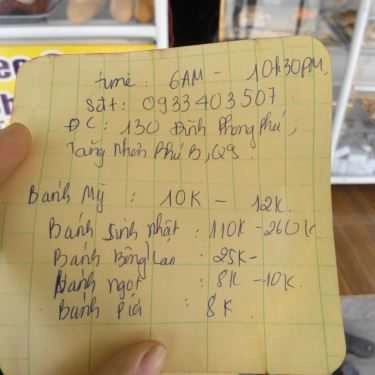 time : 6AM - 10h30PM.
Sđt : 0933403507
ĐC : 130 Đình Phong Phú,
Tăng Nhơn Phú B, Q9.
Bánh Mỳ : 10K - 12K.
Bánh Sinh nhật : 110K - 260K
Bánh Bông Lan : 25K -
Bánh ngọt : 8K - 10K
Bánh Pía : 8K